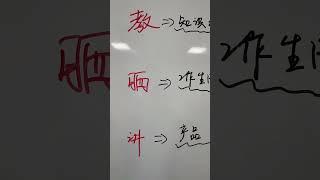 教 ⇒ 知识
晒 ⇒ 工作生
讲 ⇒ 产品